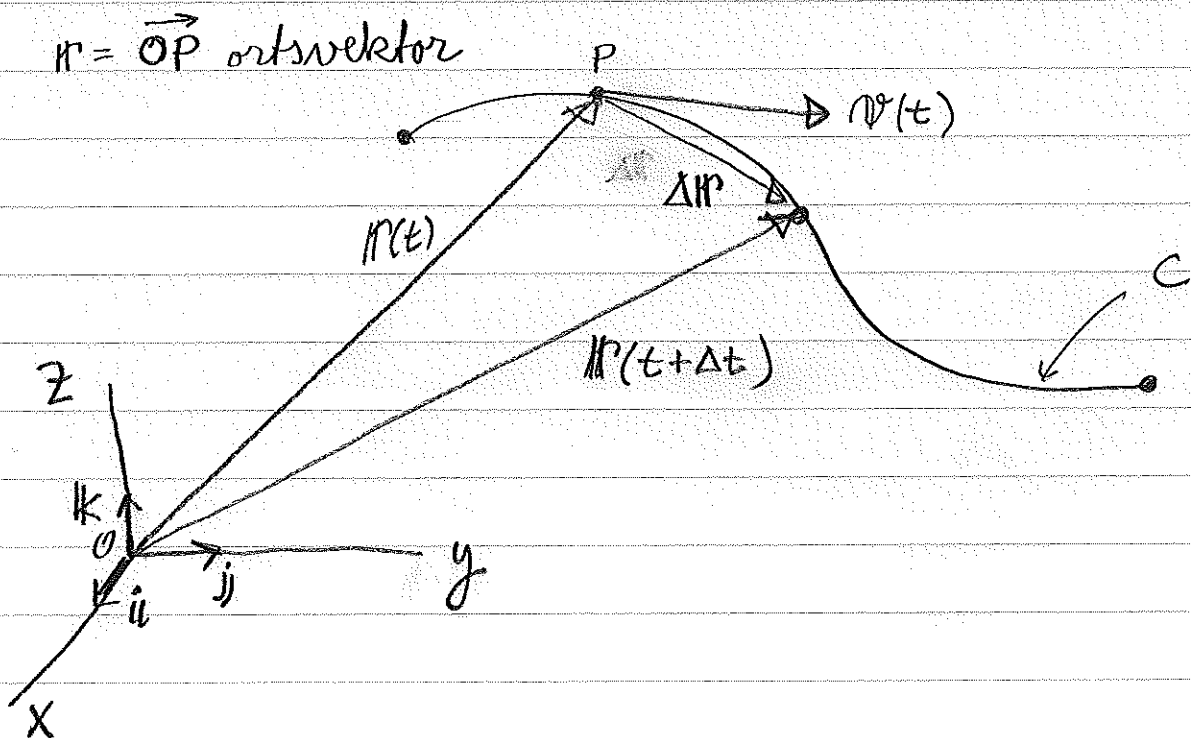 𝕣 = OP⃗ ortsvektor
P
𝕧(t)
Δ𝕣
𝕣(t)
C
𝕣(t+Δt)
Z
𝕜
O
𝕛
y
𝕚
X